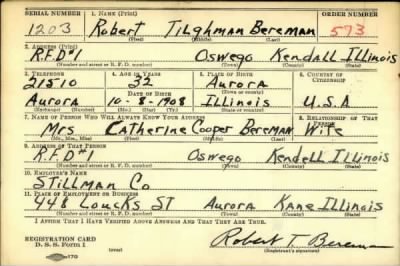 SERIAL NUMBER 1. NAME (Print) ORDER NUMBER
1203 Robert Tilghman Bereman 573
(First) (Middle) (Last)
2. ADDRESS (Print)
R.F.D#1 Oswego Kendall Illinois
(Number and street or R. F. D. number) (Town) (County) (State)
3. TELEPHONE 4. AGE IN YEARS 5. PLACE OF BIRTH 6. COUNTRY OF CITIZENSHIP
21510 32 Aurora
DATE OF BIRTH (Town or county)
Aurora 10-8-1908 Illinois U.S.A
(Exchange) (Number) (Mo.) (Day) (Yr.) (State or country)
7. NAME OF PERSON WHO WILL ALWAYS KNOW YOUR ADDRESS 8. RELATIONSHIP OF THAT PERSON
Mrs Catherine Cooper Bereman Wife
(Mr., Mrs., Miss) (First) (Middle) (Last)
9. ADDRESS OF THAT PERSON
R.F.D#1 Oswego Kendell Illinois
(Number and street or R. F. D. number) (Town) (County) (State)
10. EMPLOYER'S NAME
Stillman Co
11. PLACE OF EMPLOYMENT OR BUSINESS
448 Loucks ST Aurora Kane Illinois
(Number and street or R. F. D. number) (Town) (County) (State)
I AFFIRM THAT I HAVE VERIFIED ABOVE ANSWERS AND THAT THEY ARE TRUE.
REGISTRATION CARD
D. S. S. Form 1 (over) Robert T. Bereman
(Registrant's signature)